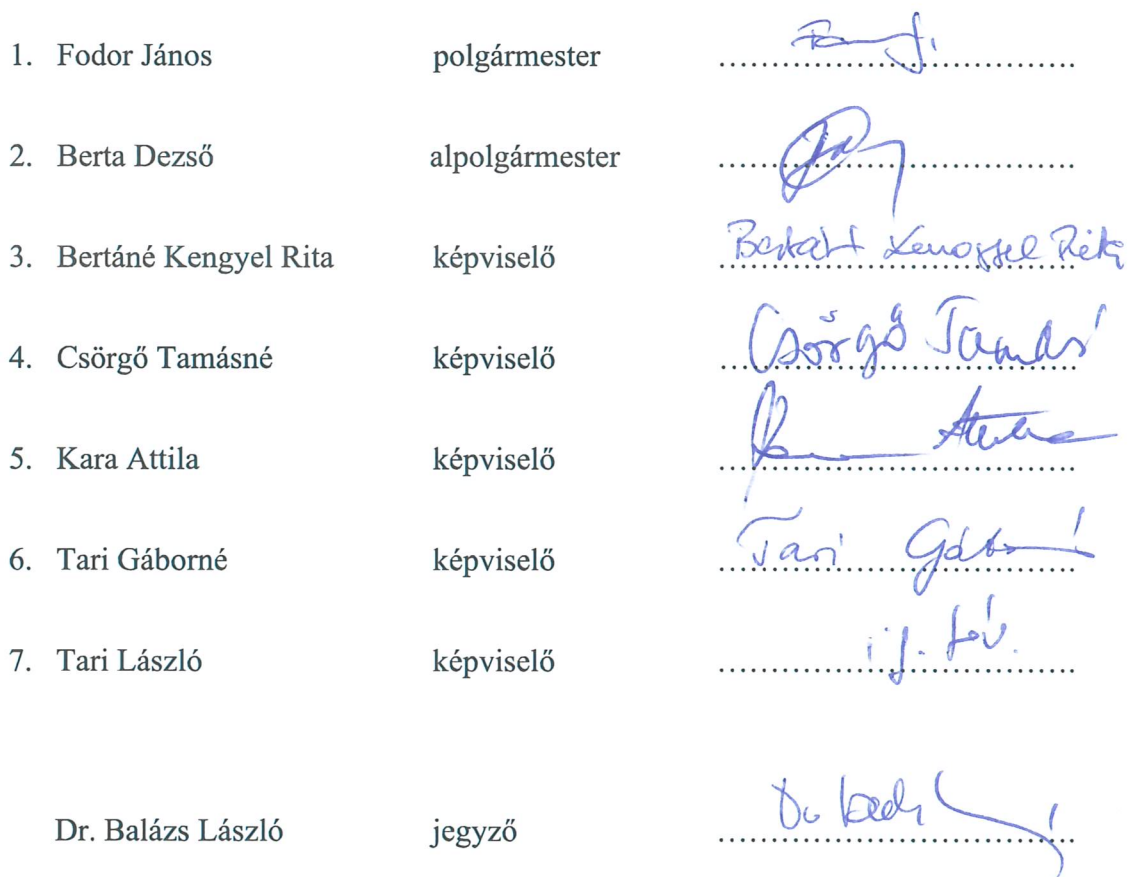 1. Fodor János polgármester
2. Berta Dezső alpolgármester
3. Bertáné Kengyel Rita képviselő Kengyel Rita
4. Csörgő Tamásné képviselő Csörgő Tamás
5. Kara Attila képviselő Attila
6. Tari Gáborné képviselő Tari Gábor
7. Tari László képviselő ig. táv.
Dr. Balázs László jegyző Dr